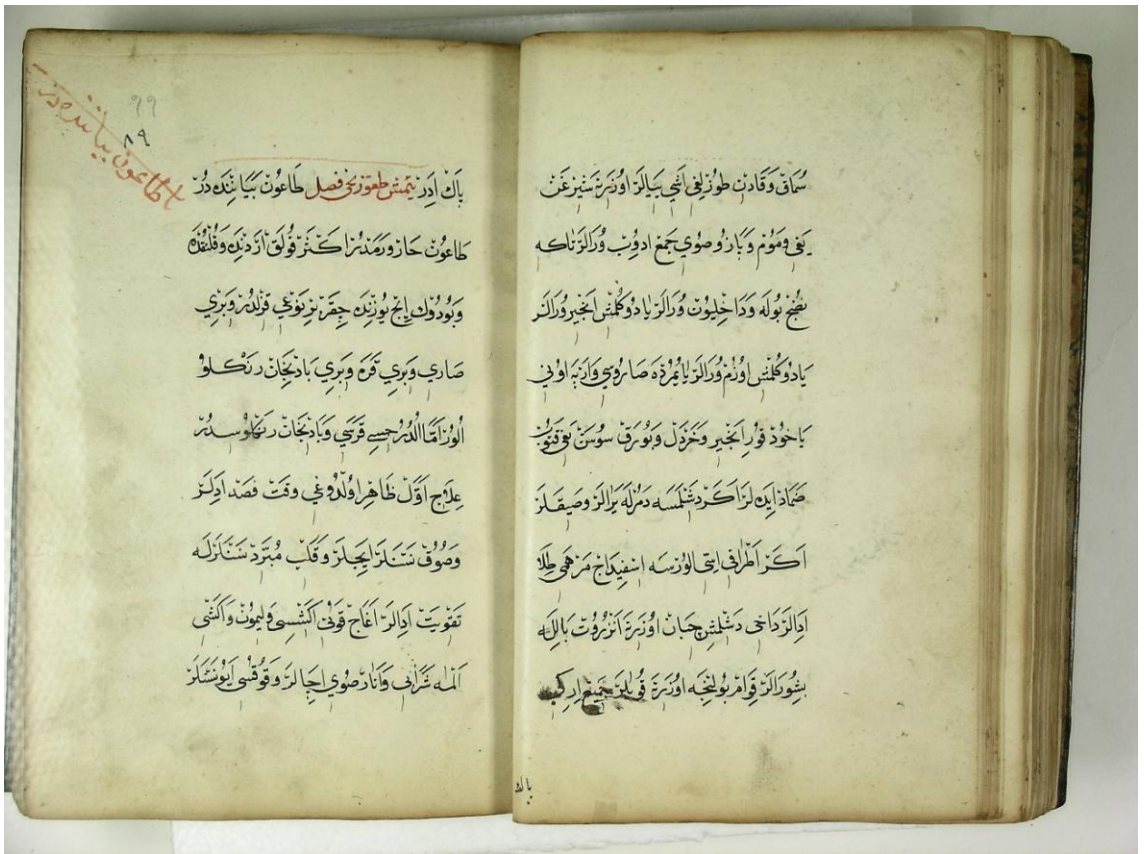 سُمَاقْ وَقَادِنْ طُوزْلِغِي اَشِي يِيَالَرْ اُوزَرَنَه سَنِيزْ غَنْ
يَغِي وَمَوُمْ وَبَازُو صُويِ جَمْعْ ادُوبْ وُرَالَرْ تَاكه
نُضْج بُولَه وَدَاخِلِيُونْ وُرَالَرْ يَا دُوكُلْمِشْ اَنْجِيرْ وُرَالَرْ
يَا دُوكُلْمِشْ اوُزُمْ وُرَالَرْ يَا يُمُرْدَه صَارُوسِي وَارْپَه اوُنِي
يَاخُودْ قُورِ اَنْجِيرْ وَخَرْدَلْ وَبُورَقْ سُوسَنْ يَغِي
ضِمَادْ ايدَه لَرْ اَكَرْ دَشْلَمَسَه دَمُرْلَه يَرَالَرْ وَصِيقَلَرْ
اَكَرْ اَطْرَافِي اِتِي اَلُورْسَه اِسْفِيدَاجْ مَرْهَمِي طِلَا
اِدَالَرْ دَاخِي دَشْلْمِشْ چِبَانْ اوُزَرَنَه اَنْزَرُوتْ بَالِلَه
بِشُورَالَرْ قِوَامْ بُولِنْجَه اوُزَرَنَه قُويَالَرْ جَمِيعِ اِرِكِنِي
پاك
٩٩
٨٩
طاعون بياننده در
پَاكْ اِدَرْ يَتْمِشْ طُقُوزُنْجِي فَصِلْ طَاعُونْ بَيَانِنْدَه دُرْ
طَاعُونْ حَارْ وَرَمْدُرْ اَكْثَرْ قُولَقْ اَرْدِنْدَه وَقُلْتُقْدَه
وَبُودُوكْ اِيچ يُوزِنْدَه چِقَرْ بِرْ نَوْعِي قِزْلْدُرْ وَبِرِي
صَارِي وَبِرِي قَرَه وَبِرِي بَادِنْجَانْ رَنْكْلُو
اُلُورْ اَمَّا اُلْدُرُجِيسِي قَرَسِي وَبَادِنْجَانْ رَنْكْلُوسِدُرْ
عِلَاجْ اَوَّلْ ظَاهِرْ اوُلْدُوغِي وَقْتْ فَصْدْ ادَلَرْ
وَصُوُقْ نَسْنَلَرْ اِيچَلَرْ وَقَلْبْ مُبَرِّدْ نَسْنَلَرْلَه
تَقْوِيَتْ ادَالَرْ اَغَاجْ قَوُنِي اَكْشِسِي وَلِيمُونْ وَاَكْشِي
اَلْمَه شَرَابِي وَاَنَارْ صُويِ اِچَالَرْ وَقُوقُسِي اَيُو نَسْنَلَرْ